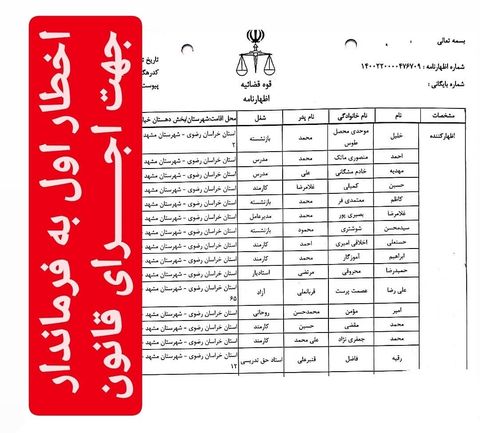 اخطار اول به فرماندار
جهت اجـــرای قانون
بسمه تعالی
شماره اظهارنامه : ۱۴۰۰۲۲۰۰۰۰۴۷۶۷۰۹
شماره بایگانی:
قوه قضائیه
اظهارنامه
تاریخ
پیوست
مشخصات نام نام خانوادگی نام پدر شغل محل اقامت:شهرستان/بخش دهستان
اظهارکننده خلیل موحدی محصل طوسی محمد بازنشسته استان خراسان رضوی - شهرستان مشهد ۲
احمد منصوری ماتک محمد مدرس استان خراسان رضوی - شهرستان مشهد
مهدیه خادم مشگانی علی مدرس استان خراسان رضوی - شهرستان مشهد
حسین کمیلی غلامرضا کارمند استان خراسان رضوی - شهرستان مشهد
کاظم معتمدی فر محمد بازنشسته استان خراسان رضوی - شهرستان مشهد
غلامرضا بصیری پور محمد مدیرعامل استان خراسان رضوی - شهرستان مشهد
سیدمحسن شوشتری محمود بازنشسته استان خراسان رضوی - شهرستان مشهد
حسنعلی اخلاقی امیری احمد کارمند استان خراسان رضوی - شهرستان مشهد
ابراهیم آموزگار محمد کارمند استان خراسان رضوی - شهرستان مشهد
حمیدرضا محروقی مرتضی استادیار استان خراسان رضوی - شهرستان مشهد
علی رضا عصمت پرست قربانعلی آزاد استان خراسان رضوی - شهرستان مشهد ۶۵
امیر مؤمن محمدحسن روحانی استان خراسان رضوی - شهرستان مشهد
محمد مقضی حسین کارمند استان خراسان رضوی - شهرستان مشهد
محمد جعفری نژاد علی محمد کارمند استان خراسان رضوی - شهرستان مشهد
رقیه فاضل قنبرعلی استاد حق تدریسی استان خراسان رضوی - شهرستان مشهد ۱۲